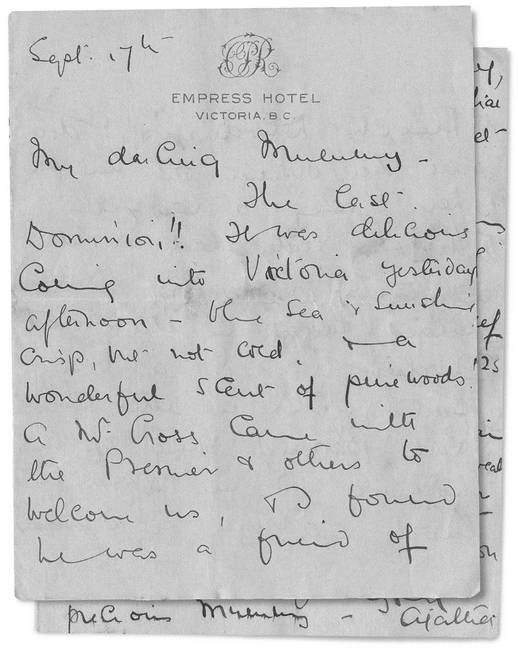 Sept. 17th
CPR
EMPRESS HOTEL
VICTORIA, B.C.
My darling Mummy –
The last
Dominion!! It was delicious
Coming into Victoria yesterday
afternoon – blue sea & sunshine
crisp, but not cold, & a
wonderful scent of pinewoods.
A Mr. Cross came with
the Premier & others to
welcome us, & found
he was a friend of
precious Mummy – Agatha